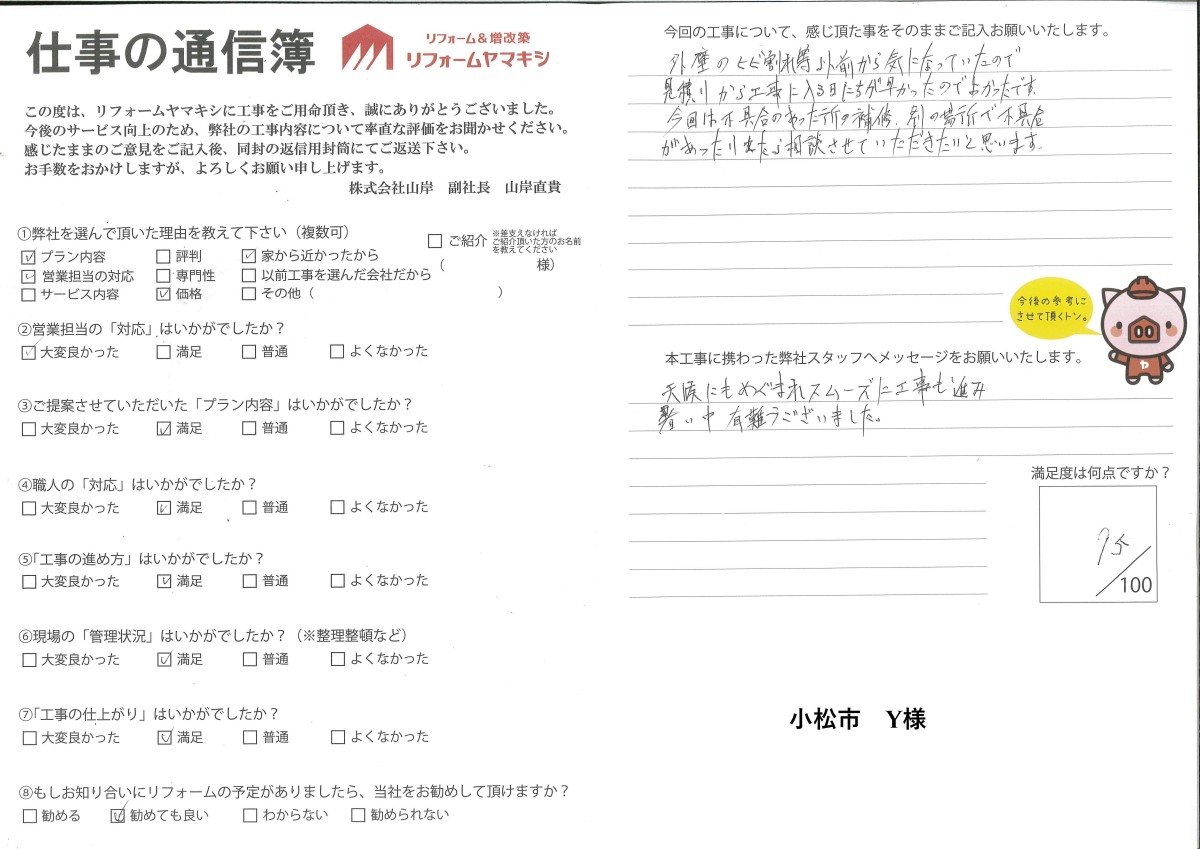 仕事の通信簿
リフォーム&増改築
リフォームヤマキシ
この度は、リフォームヤマキシに工事をご用命頂き、誠にありがとうございました。
今後のサービス向上のため、弊社の工事内容について率直な評価をお聞かせください。
感じたままのご意見をご記入後、同封の返信用封筒にてご返送下さい。
お手数をおかけしますが、よろしくお願い申し上げます。
株式会社山岸 副社長 山岸直貴
①弊社を選んで頂いた理由を教えて下さい（複数可）
☑プラン内容 □評判 ☑家から近かったから
☑営業担当の対応 □専門性 □以前工事を選んだ会社だから
□サービス内容 ☑価格 □その他（ ）
□ご紹介
※差支えなければ
ご紹介頂いた方のお名前
を教えてください
（ 様）
②営業担当の「対応」はいかがでしたか？
☑大変良かった □満足 □普通 □よくなかった
③ご提案させていただいた「プラン内容」はいかがでしたか？
□大変良かった ☑満足 □普通 □よくなかった
④職人の「対応」はいかがでしたか？
□大変良かった ☑満足 □普通 □よくなかった
⑤「工事の進め方」はいかがでしたか？
□大変良かった ☑満足 □普通 □よくなかった
⑥現場の「管理状況」はいかがでしたか？（※整理整頓など）
□大変良かった ☑満足 □普通 □よくなかった
⑦「工事の仕上がり」はいかがでしたか？
□大変良かった ☑満足 □普通 □よくなかった
⑧もしお知り合いにリフォームの予定がありましたら、当社をお勧めして頂けますか？
□勧める ☑勧めても良い □わからない □勧められない
今回の工事について、感じ頂た事をそのままご記入お願いいたします。
外壁のヒビ割れ等以前から気になっていたので
見積りから工事に入る日にちが早かったのでよかったです。
今回は不具合のあった所の補修、別の場所で不具合
があったり来たら相談させていただきたいと思います。
今後の参考に
させて頂くトン。
ヤ
本工事に携わった弊社スタッフへメッセージをお願いいたします。
天候にもめぐまれスムーズに工事も進み
暑い中有難うございました。
満足度は何点ですか？
95
/100
小松市 Y様